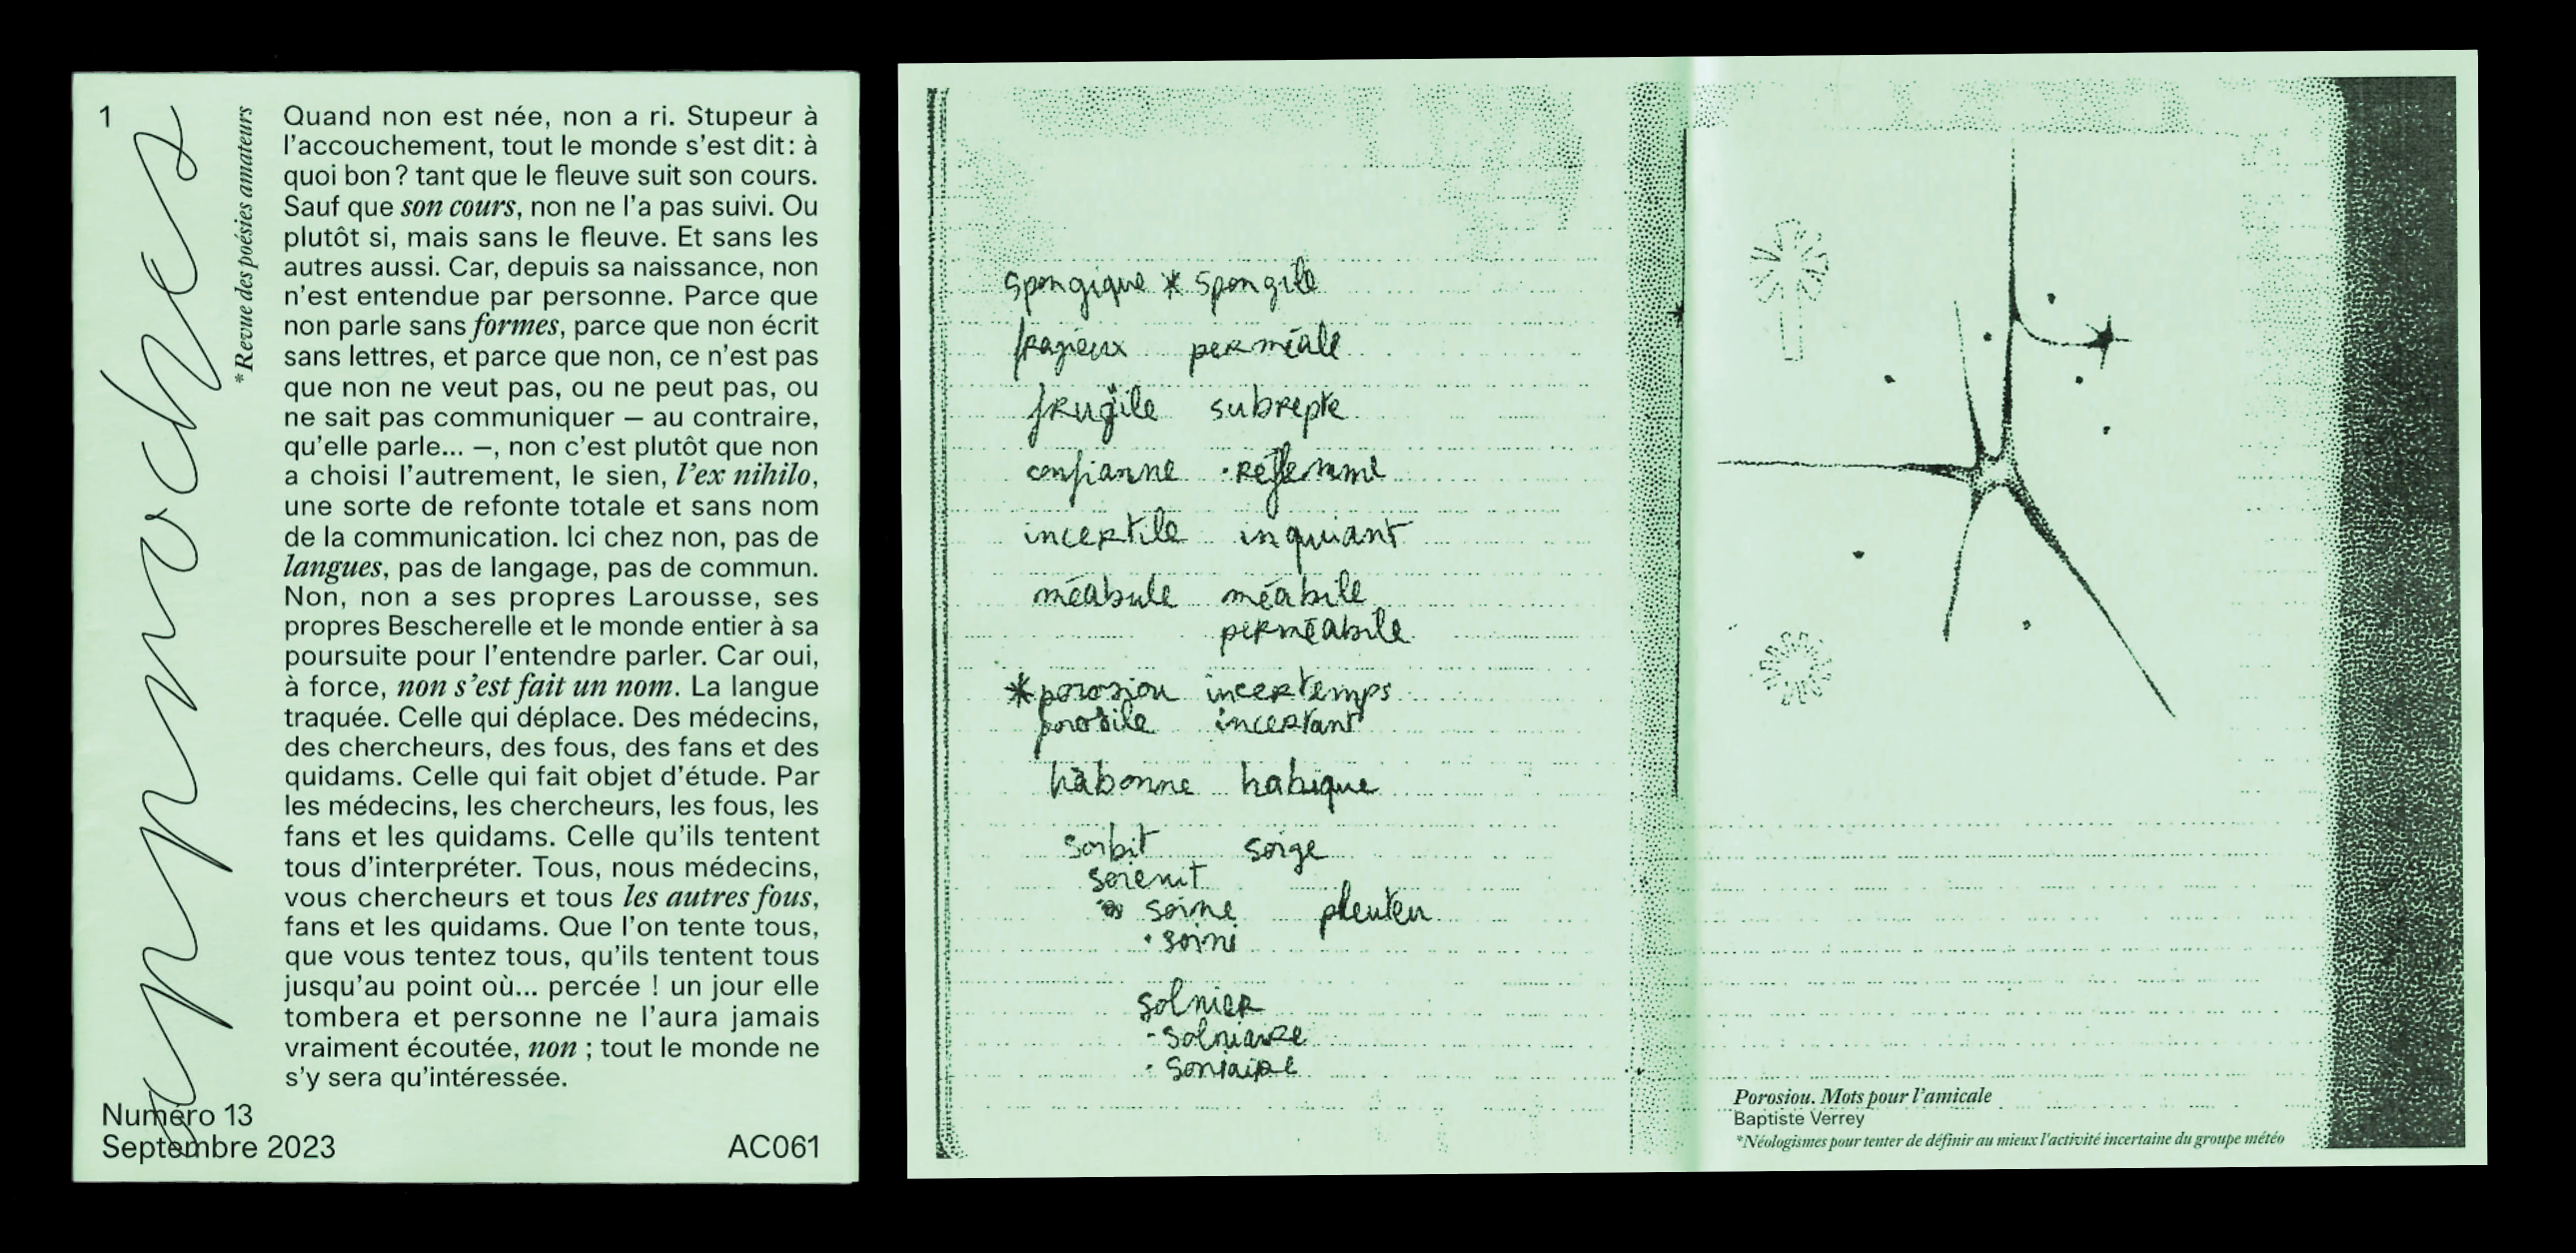 1
apnoches
*Revue des poésies amateurs
Quand non est née, non a ri. Stupeur à
l'accouchement, tout le monde s'est dit : à
quoi bon ? tant que le fleuve suit son cours.
Sauf que son cours, non ne l'a pas suivi. Ou
plutôt si, mais sans le fleuve. Et sans les
autres aussi. Car, depuis sa naissance, non
n'est entendue par personne. Parce que
non parle sans formes, parce que non écrit
sans lettres, et parce que non, ce n'est pas
que non ne veut pas, ou ne peut pas, ou
ne sait pas communiquer — au contraire,
qu'elle parle... —, non c'est plutôt que non
a choisi l'autrement, le sien, l'ex nihilo,
une sorte de refonte totale et sans nom
de la communication. Ici chez non, pas de
langues, pas de langage, pas de commun.
Non, non a ses propres Larousse, ses
propres Bescherelle et le monde entier à sa
poursuite pour l'entendre parler. Car oui,
à force, non s'est fait un nom. La langue
traquée. Celle qui déplace. Des médecins,
des chercheurs, des fous, des fans et des
quidams. Celle qui fait objet d'étude. Par
les médecins, les chercheurs, les fous, les
fans et les quidams. Celle qu'ils tentent
tous d'interpréter. Tous, nous médecins,
vous chercheurs et tous les autres fous,
fans et les quidams. Que l'on tente tous,
que vous tentez tous, qu'ils tentent tous
jusqu'au point où... percée ! un jour elle
tombera et personne ne l'aura jamais
vraiment écoutée, non ; tout le monde ne
s'y sera qu'intéressée.
Numéro 13
Septembre 2023
AC061
spongique * spongile
fragieux perméale
frugile subrepte
confianne · reflemme
incertile inquiant
méabule méabile
perméabile
*porosiou incertemps
porosile incertant
habonne habique
sorbit sorge
sorenit
soime pleuteu
· soimi
solnier
- solniaire
· soniaire
Porosiou. Mots pour l'amicale
Baptiste Verrey
*Néologismes pour tenter de définir au mieux l'activité incertaine du groupe météo